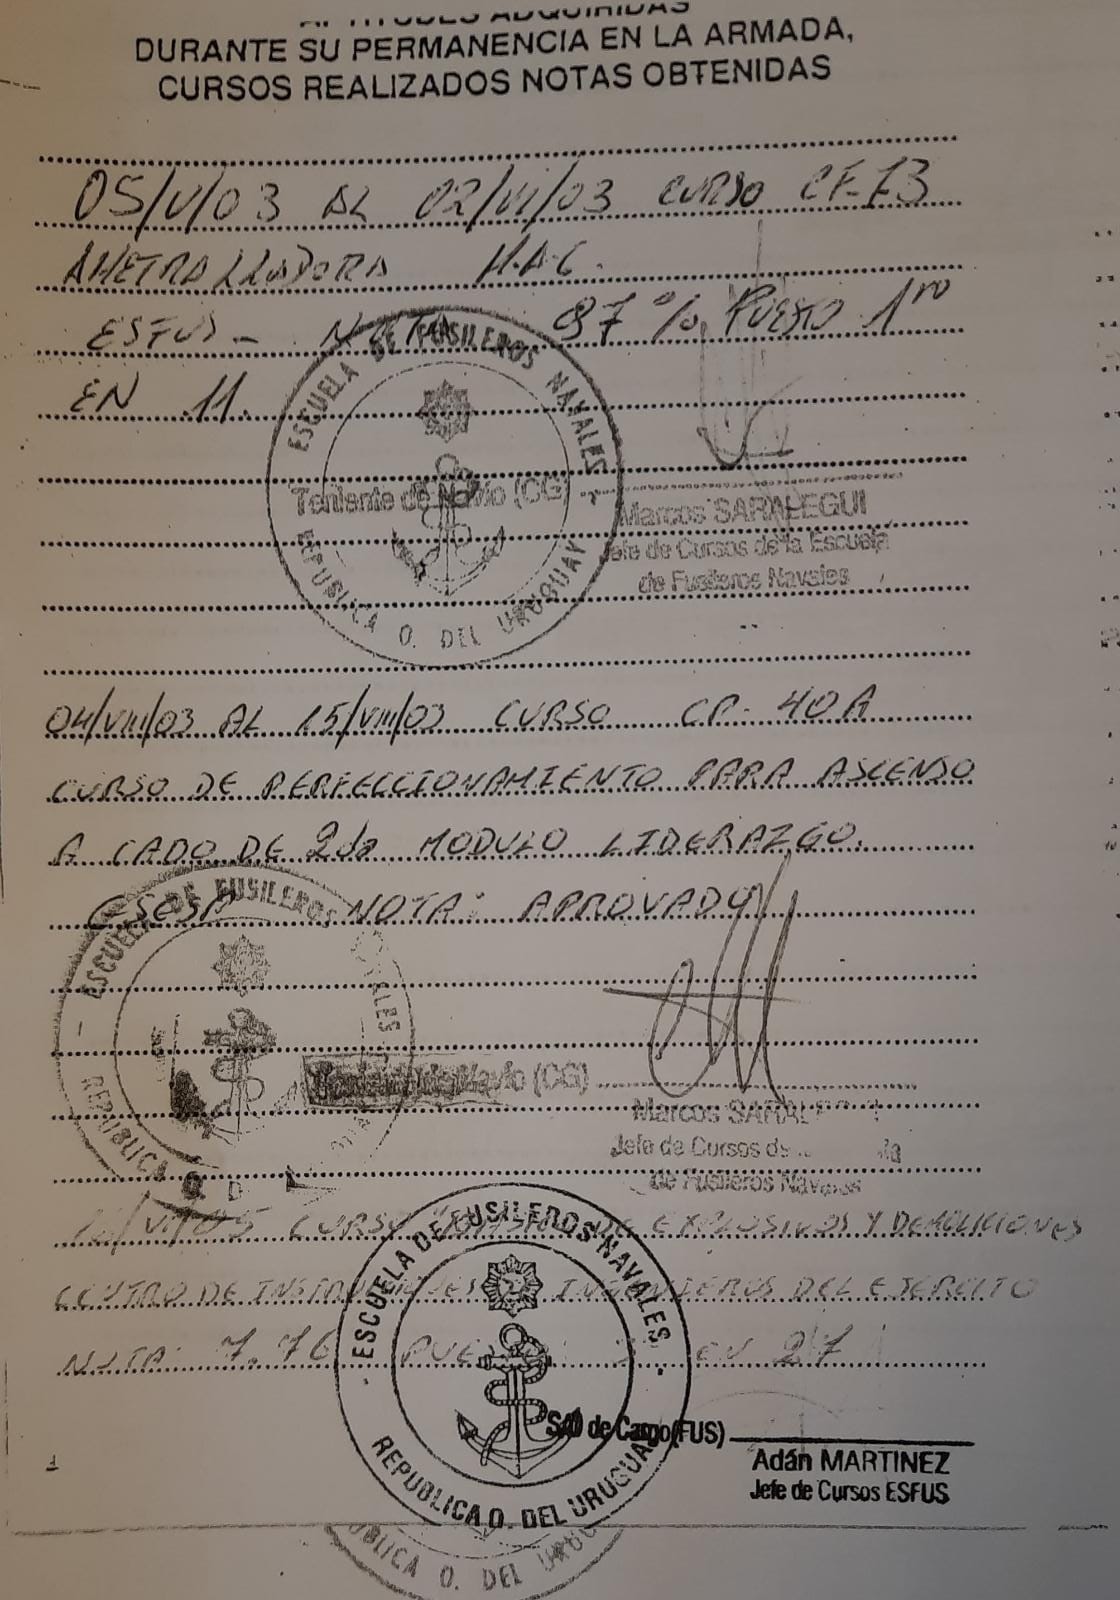 APTITUDES ADQUIRIDAS
DURANTE SU PERMANENCIA EN LA ARMADA,
CURSOS REALIZADOS NOTAS OBTENIDAS
05/V/03 AL 02/VI/03 CURSO CF-73
AMETRALLADORA M.A.G.
ESFUS - NOTA 97 % PUESTO 1ro
EN 11.
ESCUELA DE FUSILEROS NAVALES
REPUBLICA O. DEL URUGUAY
Teniente de Navío (CG)
Marcos SARALEGUI
Jefe de Cursos de la Escuela
de Fusileros Navales
04/VIII/03 AL 15/VIII/03 CURSO CP-40A
CURSO DE PERFECCIONAMIENTO PARA ASCENSO
A CADO DE 2da MODULO LIDERAZGO.
NOTA: APROVADO
ESCUELA DE FUSILEROS NAVALES
REPUBLICA O. D
Teniente de Navío (CG)
Marcos SARAL
Jefe de Cursos de
de Fusileros Navales
/05 CURSO DE EXPLOSIVOS Y DEMOLICIONES
CENTRO DE INSTRUCCIONES INGENIEROS DEL EJERCITO
NOTA: 7.76 EN 27
ESCUELA DE FUSILEROS NAVALES
REPUBLICA O. DEL URUGUAY
de Cargo (FUS)
Adán MARTINEZ
Jefe de Cursos ESFUS
1
PUBLICA O. DEL URUGU